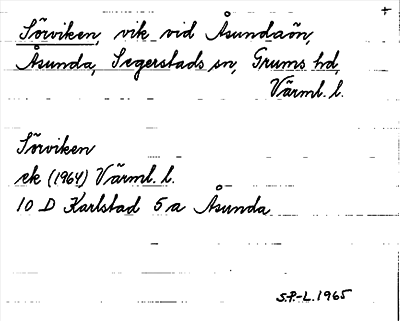 +
Sörviken, vik vid Åsundaön,
Åsunda, Segerstads sn, Grums hd,
Värml. l.
Sörviken
ek (1964) Värml. l.
10 D Karlstad 5 a Åsunda
S.P-L. 1965